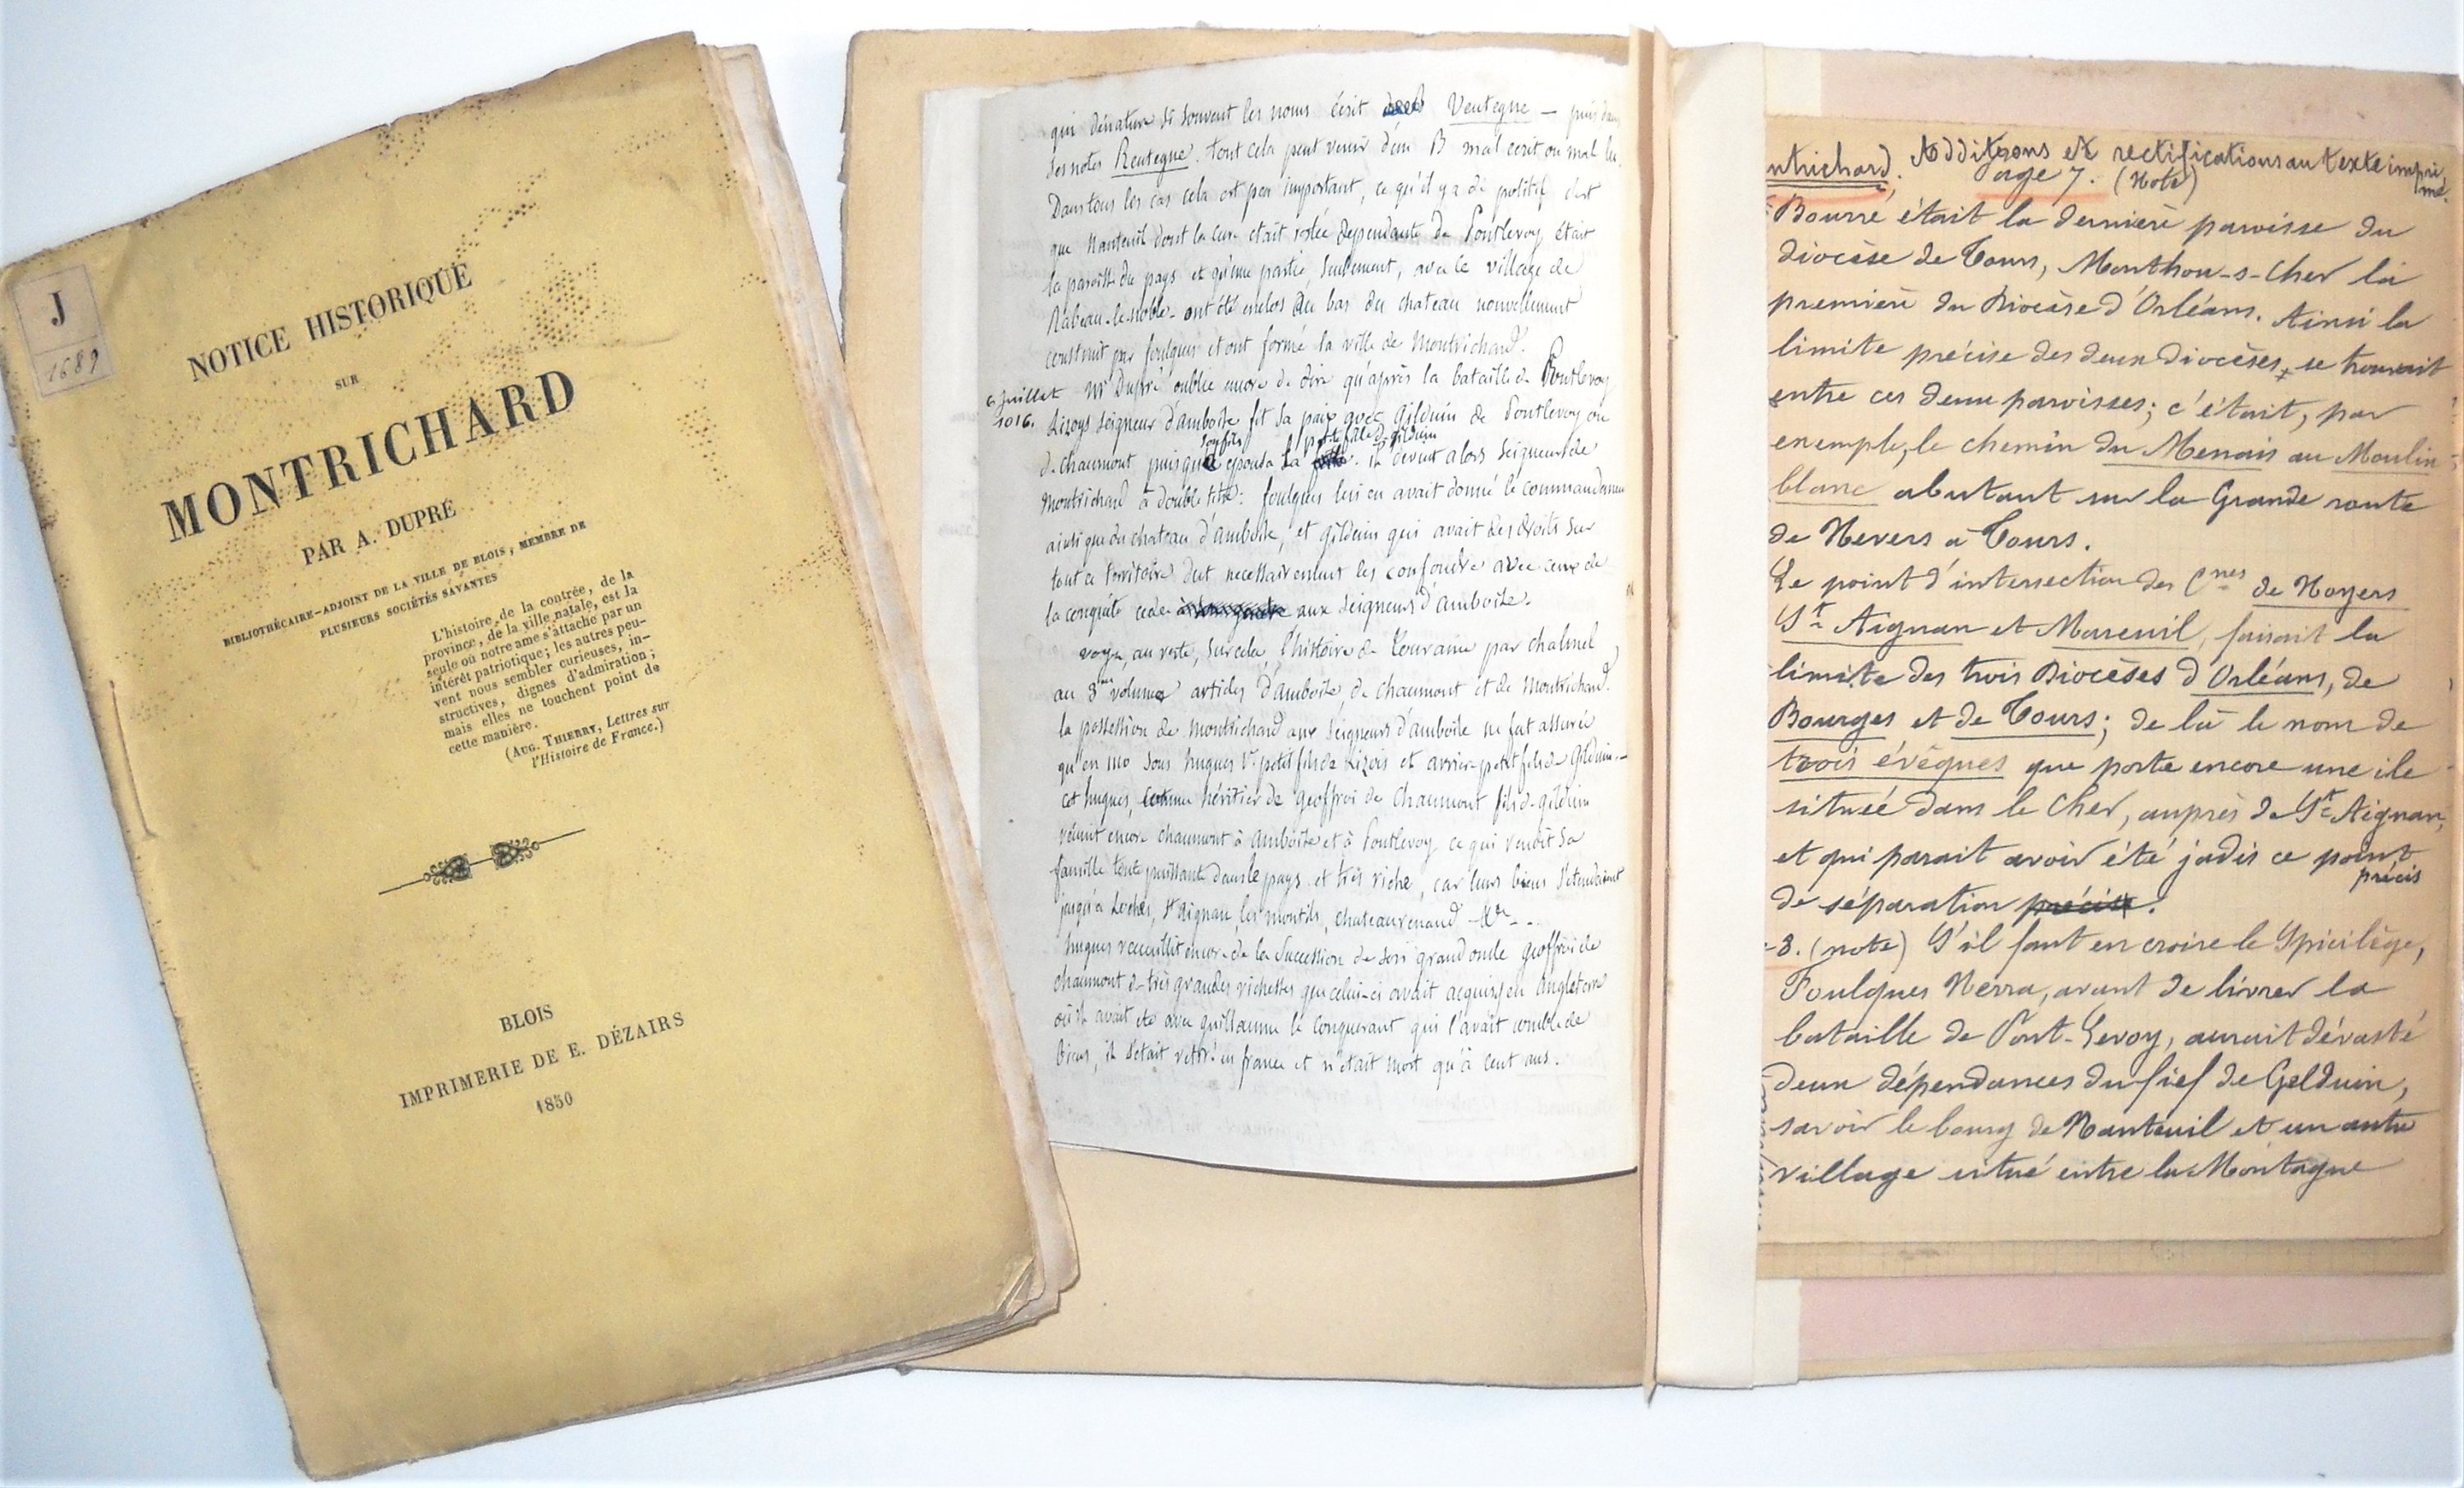 J
1689
NOTICE HISTORIQUE
SUR
MONTRICHARD
PAR A. DUPRÉ
BIBLIOTHÉCAIRE-ADJOINT DE LA VILLE DE BLOIS, MEMBRE DE
PLUSIEURS SOCIÉTÉS SAVANTES
L'histoire de la contrée, de la
province, de la ville natale, est la
seule où notre ame s'attache par un
intérêt patriotique; les autres peu-
vent nous sembler curieuses, in-
structives, dignes d'admiration;
mais elles ne touchent point de
cette manière.
(AUG. THIERRY, Lettres sur
l'Histoire de France.)
BLOIS
IMPRIMERIE DE E. DÉZAIRS
1850
qui dénature si souvent les noms écrit Ventegne — puis dans
ses notes Rentegne. tout cela peut venir d'un B mal écrit ou mal lu.
Dans tous les cas cela est peu important, ce qu'il y a de positif c'est
que Nanteuil dont la cure était restée dependante de Pontlevoy était
la paroisse du pays et qu'une partie seulement, avec le village de
Nabeau-le-noble- ont été enclos du bas du chateau nouvellement
construit par foulques et ont formé la ville de Montrichard.
6 Juillet
1016.
Mr Dupré oublie encore de dire qu'après la bataille de Pontlevoy
Lizoys seigneur d'amboise fit sa paix avec Gilduin de Pontlevoy ou
son fils petite fille de gilduin
de chaumont puisque épousa la il devint alors seigneur de
Montrichard à double titre: foulques lui en avait donné le commandement
ainsi que du chateau d'amboise, et gilduin qui avait des droits sur
tout ce territoire dut necessairement les confondre avec ceux de
la conquête cedée aux seigneurs d'amboise.
voyez, au reste, sur cela, l'histoire de Touraine par chalmel,
au 3me volume articles d'amboise, de chaumont et de Montrichard.
la possession de Montrichard aux seigneurs d'amboise ne fut assurée
qu'en 1110 sous hugues 1er petit fils de Lizois et arrière petit fils de Gilduin.—
cet hugues, comme héritier de geoffroi de chaumont fils de gilduin
réunit encore chaumont à amboise et à Pontlevoy ce qui rendit sa
famille toute puissante dans le pays et très riche, car leurs biens s'étendaient
jusqu'à Loches, St aignan, les montils, chateaurenaud &a...
hugues recueillit encore de la succession de son grand oncle geoffroi de
chaumont de très grandes richesses que celui-ci avait acquises en angleterre
où il avait été avec guillaume le conquerant qui l'avait comblé de
biens, il s'était retiré en france et n'était mort qu'à cent ans.
ntrichard. Additions et rectifications au texte impri
mé.
age 7. (Note)
Bourré était la dernière paroisse du
diocèse de Tours, Monthou-s-Cher la
première du Diocèse d'Orléans. Ainsi la
limite précise des deux diocèses, se trouvait
entre ces deux paroisses; c'était, par
exemple, le chemin du Menais au Moulin
blanc abutant sur la Grande route
de Nevers à Tours.
Le point d'intersection des Cnes de Noyers
St Aignan et Mareuil, faisait la
limite des trois Diocèses d'Orléans, de
Bourges et de Tours; de là le nom de
trois évêques que porte encore une ile
située dans le Cher, auprès de St Aignan,
et qui parait avoir été jadis ce point
précis
de séparation précise.
-8. (note) S'il faut en croire le Spicilège,
Foulques Nerra, avant de livrer la
bataille de Pont-Levoy, aurait dévasté
deux dépendances du fief de Gelduin,
savoir le bourg de Nanteuil et un autre
village situé entre la Montagne